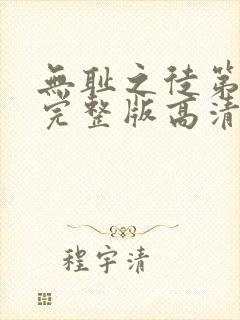 無耻之徒第
完整版高清
程宇清